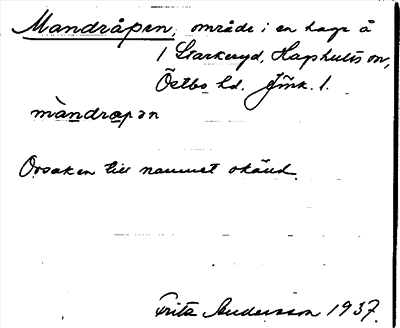 Mandråpen, område i en hage å
1 Starkeryd, Haghults sn,
Östbo hd. Jmk. l.
màndrapən
Orsaken till namnet okänd.
Fritz Andersson 1937.